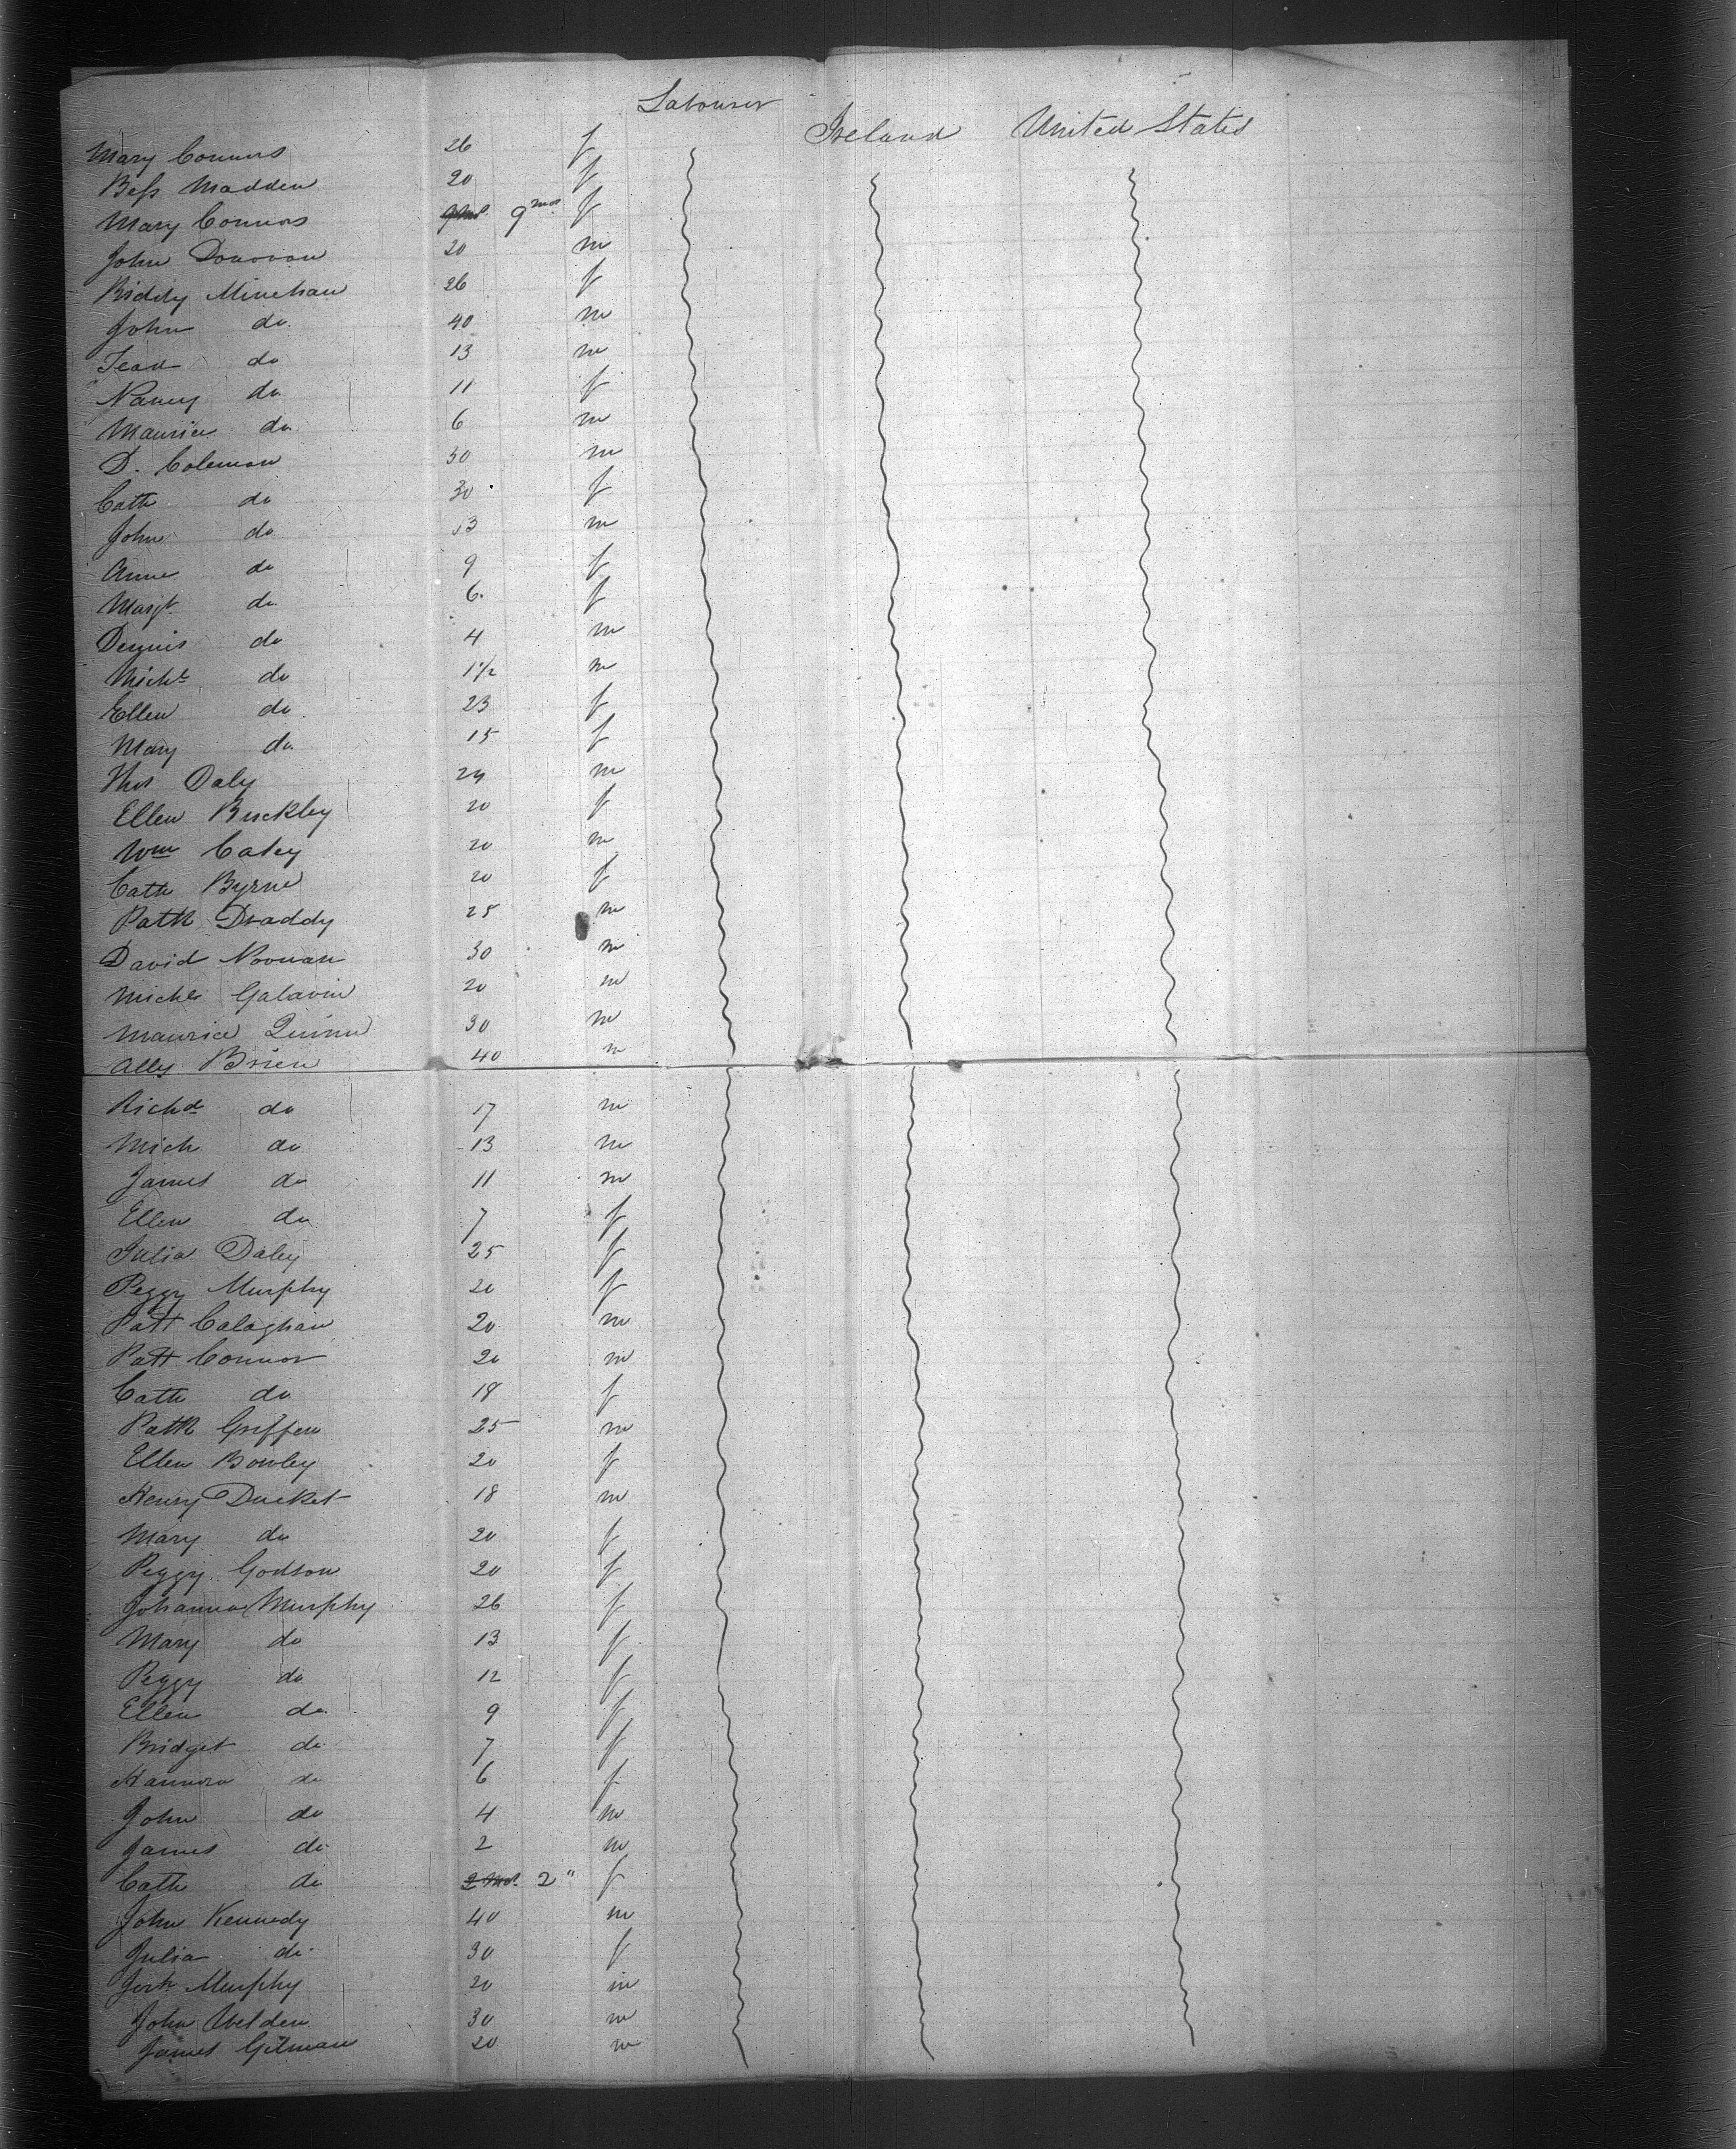 Labourer Ireland United States
Mary Connors 26 f
Bess Madden 20 f
Mary Connors 9mos 9mos f
John Donovan 20 m
Biddy Minehan 26 f
John do 40 m
do 13 m
Nancy do 11 f
Maurice do 6 m
D. Coleman 30 m
Cath do 30 f
John do 13 m
Anne do 9 f
Margt do 6 f
Dennis do 4 m
Michl do 1 1/2 m
Ellen do 23 f
Mary do 15 f
Thos Daly 24 m
Ellen Buckley 20 f
Wm Catey 20 m
Cath Byrne 20 f
Patk Draddy 25 m
David Noonan 30 m
Michl Galavin 20 m
Maurice Quinn 30 m
Ally Brien 40 m
Richd do 17 m
Mich do 13 m
James do 11 m
Ellen do 7 f
Julia Daley 25 f
Peggy Murphy 20 f
Patt Calaghan 20 m
Patt Connor 20 m
Cath do 18 f
Patk Griffen 25 m
Ellen Bowley 20 f
Henry Ducket 18 m
Mary do 20 f
Peggy Godson 20 f
Johanna Murphy 26 f
Mary do 13 f
Peggy do 12 f
Ellen do 9 f
Bridget do 7 f
Hannora do 6 f
John do 4 m
James do 2 m
Cath do 2 mos 2 " f
John Kennedy 40 m
Julia do 30 f
Murphy 20 m
John Welden 30 m
James Gilman 20 m